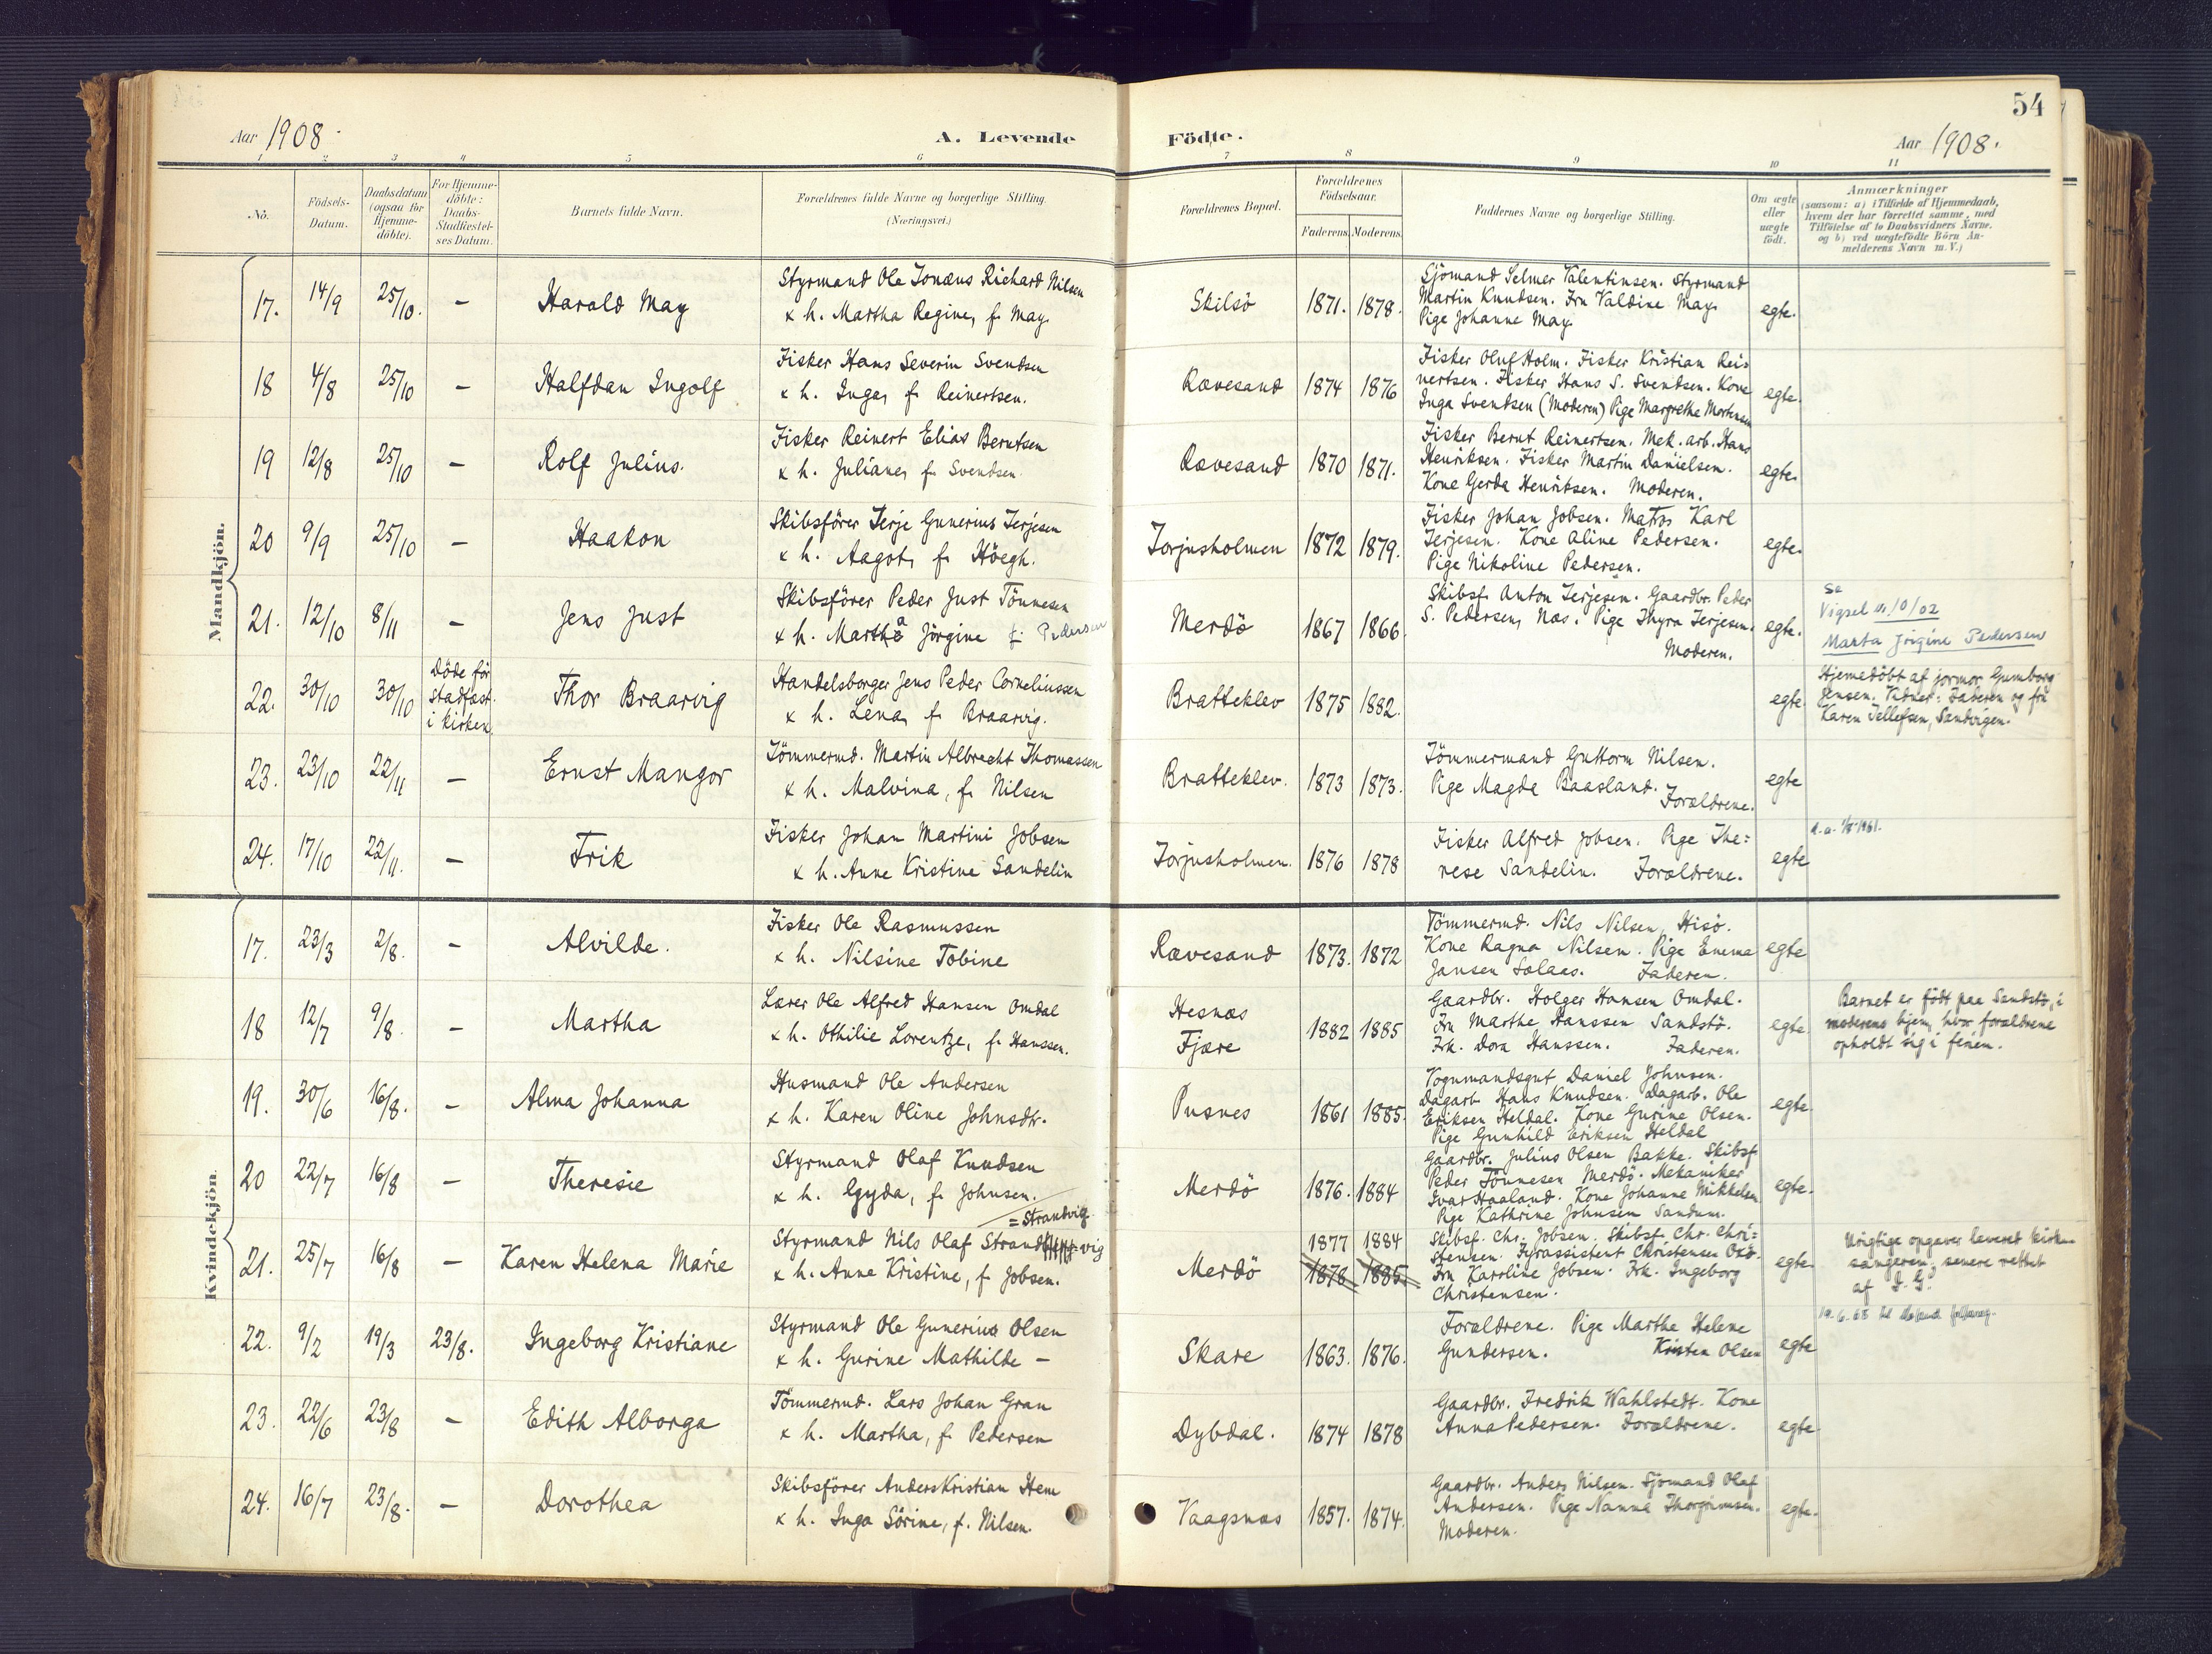 54
Aar 1908. A. Levende Födte. Aar 1908.
1 2 3 4 5 6 7 8 9 10 11
No.
Födsels-
Datum.
Daabsdatum
(ogsaa for
Hjemme-
döbte).
For Hjemme-
döbte:
Daabs-
Stadfæstel-
ses Datum.
Barnets fulde Navn.
Forældrenes fulde Navne og borgerlige Stilling.
(Næringsvei.)
Forældrenes Bopæl.
Forældrenes
Födselsaar.
Faderens. Moderens.
Faddernes Navne og borgerlige Stilling.
Om ægte
eller
uægte
födt.
Anmærkninger
(saasom: a) i Tilfælde af Hjemmedaab,
hvem der har forrettet samme, med
Tilföielse af to Daabsvidners Navne.
og b) ved uægtefödte Börn An-
melderens Navn m. V.)
Mandkjön.
17. 14/9 25/10. – Harald May
Styrmand Ole Jonæus Richard Nilsen
x h. Martha Regine, f. May.
Skilsö 1871. 1878.
Sjömand Selmer Valentinsen. Styrmand
Martin Knudsen. Fru Valdine May.
Pige Johanne May.
egte.
18 4/8 25/10 – Halfdan Ingolf
Fisker Hans Severin Svendsen
x h. Inga, f. Reinertsen.
Rævesand 1874 1876
Fisker Oluf Holm. Fisker Kristian Rei=
nertsen. Fisker Hans S. Svendsen. Kone
Inga Svendsen (Moderen) Pige Margrethe Mortensen
egte.
19 12/8 25/10 – Rolf Julius.
Fisker Reinert Elias Berntsen
x h. Juliane, f. Svendsen.
Rævesand 1870 1871.
Fisker Bernt Reinertsen. Mek. arb. Hans
Henriksen. Fisker Martin Danielsen.
Kone Gerda Henriksen. Moderen.
egte.
20 9/9 25/10 – Haakon
Skibsförer Terje Gunerius Terjesen
x h. Aagot, f. Höegh.
Torjusholmen 1872 1879.
Fisker Johan Jobsen. Matros Karl
Terjesen. Kone Aline Pedersen.
Pige Nikoline Pedersen.
egte.
21. 12/10 8/11 – Jens Just
Skibsförer Peder Just Tönnesen
x h. Martha Jörgine f. Pedersen
Merdö 1867 1866.
Skibsf. Anton Terjesen. Gaardbr. Peder
S. Pedersen, Næs. Pige Thyra Terjesen.
Moderen.
egte.
Se
Vigsel nr. 10/02
Marta Jörgine Pedersen
22. 30/10 30/10
Döde för
stadfæst.
i kirken.
Thor Braarvig
Handelsborger Jens Peder Corneliussen
x h. Lena, f. Braarvig.
Bratteklev 1875 1882.
egte
Hjemedöbt af jormor Gunborg
Jensen. Vidner: Faderen og fru
Karen Tellefsen, Sandvigen.
23. 23/10 22/11 – Ernst Mangor
Tömmermd. Martin Albrecht Thomassen
x h. Malvina, f. Nilsen
Bratteklev. 1873 1873.
Tömmermand Guttorm Nilsen.
Pige Magda Baasland. Forældrene.
egte
24. 17/10 22/11. – Frik
Fisker Johan Martini Jobsen
x h. Anne Kristine Sandelin
Torjusholmen. 1876 1878
Fisker Alfred Jobsen. Pige The=
rese Sandelin. Forældrene.
egte
Kvindekjön.
17. 23/3 2/8. – Alvilde.
Fisker Ole Rasmussen
x h. Nilsine Tobine
Rævesand 1873. 1872
Tömmermd. Nils Nilsen, Hisö.
Kone Ragna Nilsen. Pige Emma
Jansen Solaas. Faderen.
egte
18 12/7 9/8. – Martha
Lærer Ole Alfred Hansen Omdal
x h. Othilie Lorentze, f. Hanssen.
Hesnæs
Fjære
1882 1885
Gaardbr. Holger Hansen Omdal.
Fru Marthe Hanssen Sandstö.
Frk. Dora Hanssen. Faderen.
egte
Barnet er födt paa Sandstö, i
moderens hjem, hvor forældrene
opholdt sig i ferien.
19. 30/6 16/8. – Alma Johanna
Husmand Ole Andersen
x h. Karen Oline Johnsdtr.
Pusnes 1861 1885.
Vognmandsgut Daniel Johnsen.
Dagarb. Hans Knudsen. Dagarb. Ole
Eriksen Heldal. Kone Gurine Olsen.
Pige Gunhild Eriksen Heldal
egte.
20 22/7 16/8 – Theresie
Styrmand Olaf Knudsen
x h. Gyda, f. Johnsen.
Merdö 1876. 1884
Gaardbr. Julius Olsen Bakke. Skibsf.
Peder Tönnesen Merdö. Mekaniker
Ivar Haaland. Kone Johanne Mikkelsen
Pige Kathrine Johnsen Sandum.
egte.
21. 25/7 16/8 – Karen Helena Marie
= Strandvig
Styrmand Nils Olaf Strand vig
x h. Anne Kristine, f. Jobsen.
Merdö
1877 1884
1878 1885.
Skibsf. Chr. Jobsen. Skibsf. Chr. Chri=
stensen. Fyrassistent Christensen Oxö.
Fru Karoline Jobsen. Frk. Ingeborg
Christensen.
egte.
Urigtige opgaver leveret kirke-
sangeren, senere rettet
af I. G.
22. 9/2 19/3 23/8. Ingeborg Kristiane
Styrmand Ole Gunerius Olsen
x h. Gurine Mathilde –
Skare 1863. 1876.
Forældrene. Pige Marthe Helene
Gundersen. Kristen Olsen
egte
23. 22/6 23/8 – Edith Alborga
Tömmermd. Lars Johan Gran
x h. Martha, f. Pedersen
Dybdal. 1874 1878
Gaardbr. Fredrik Wahlstedt. Kone
Anna Pedersen. Forældrene.
egte
24. 16/7 23/8. – Dorothea
Skibsförer Anders Kristian Hem
x h. Inga Sörine, f. Nilsen.
Vaagsnæs 1857. 1874.
Gaardbr. Anders Nilsen. Sjömand Olaf
Andersen. Pige Nanna Thorgrimsen.
Moderen.
egte.